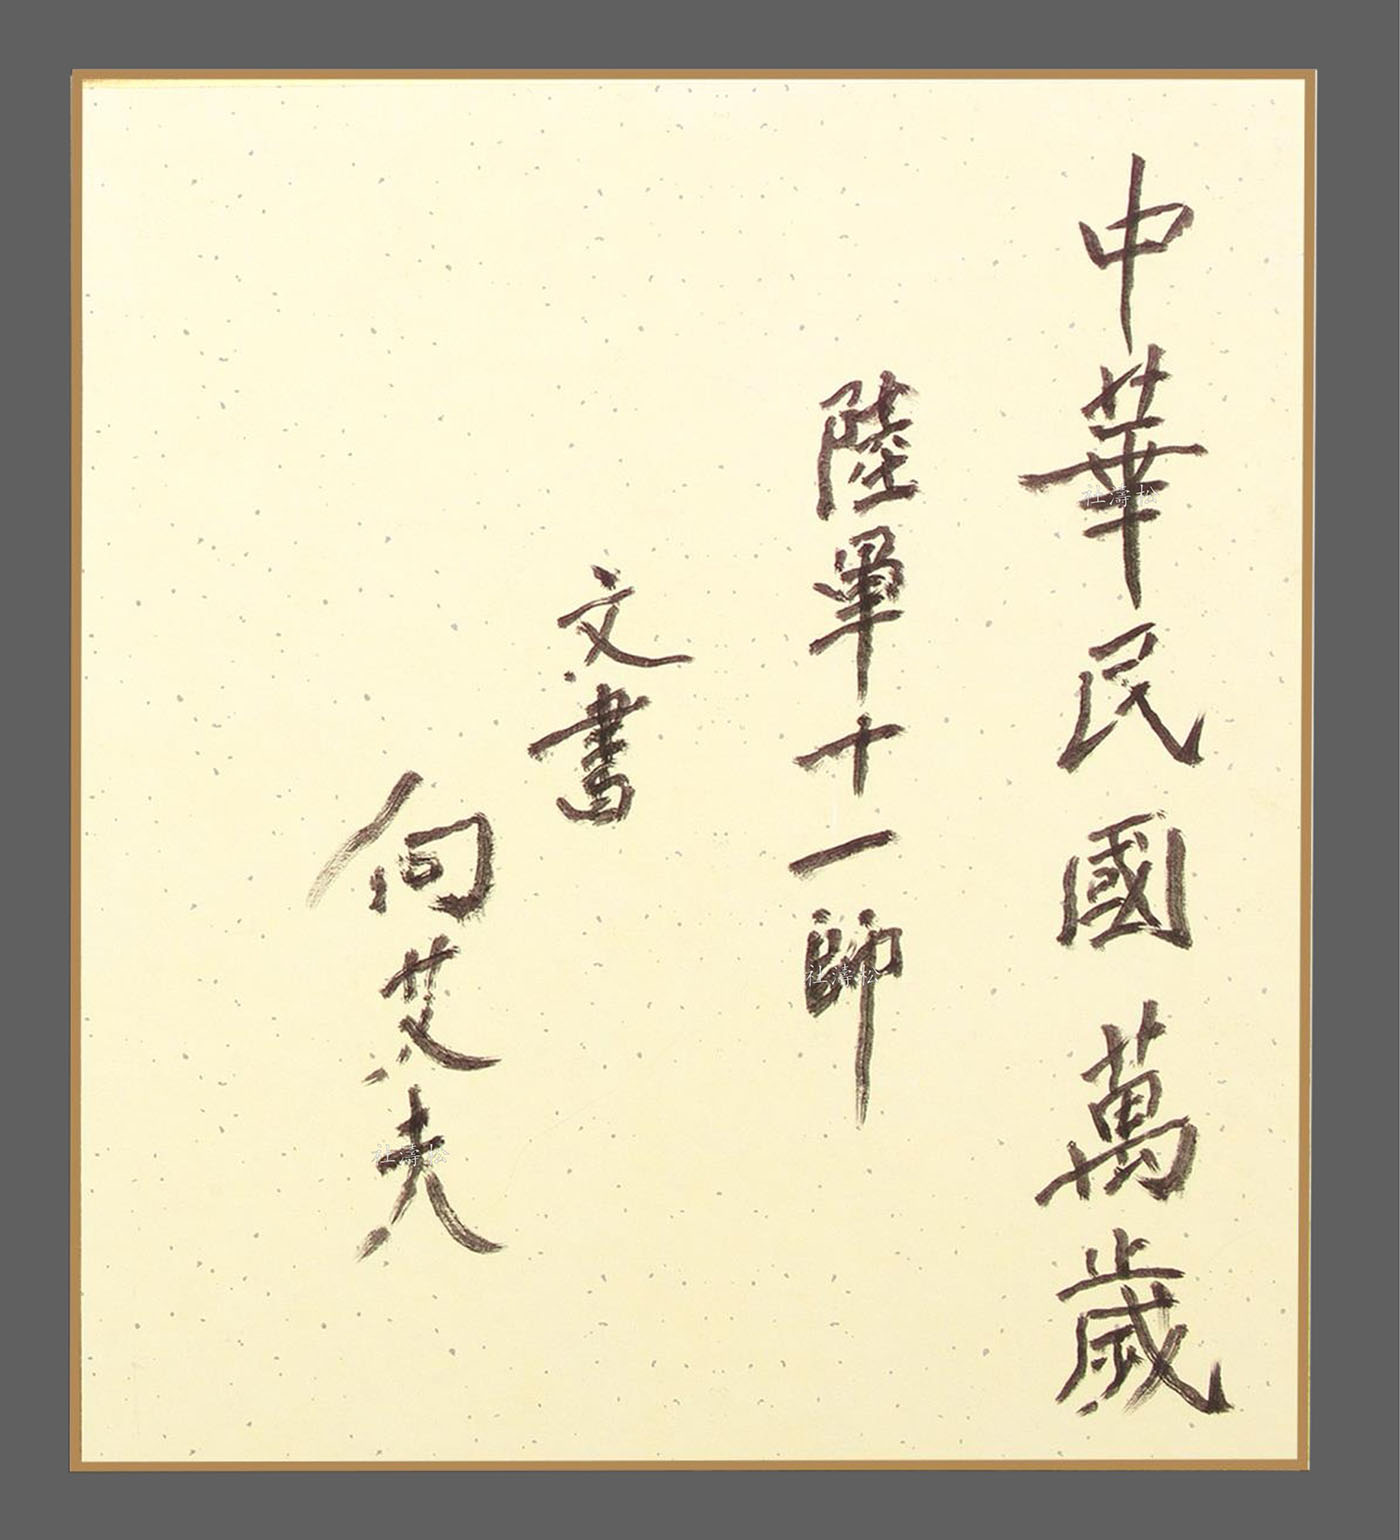 中華民國萬歲
陸軍十一師
文書
向艾夫
杜濤松
杜濤松
杜濤松